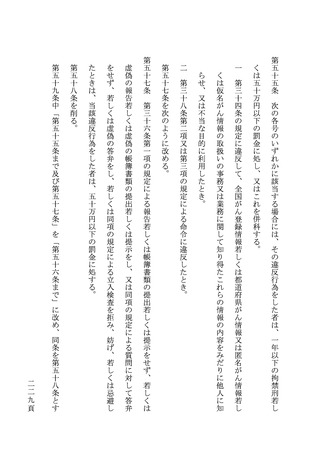 第五十五条　次の各号のいずれかに該当する場合には、その違反行為をした者は、一年以下の拘禁刑若し
くは五十万円以下の罰金に処し、又はこれを併科する。
一　第三十四条の規定に違反して、全国がん登録情報若しくは都道府県がん情報又は匿名がん情報若し
くは仮名がん情報の取扱いの事務又は業務に関して知り得たこれらの情報の内容をみだりに他人に知
らせ、又は不当な目的に利用したとき。
二　第三十八条第二項又は第三項の規定による命令に違反したとき。
第五十七条を次のように改める。
第五十七条　第三十六条第一項の規定による報告若しくは帳簿書類の提出若しくは提示をせず、若しくは
虚偽の報告若しくは虚偽の帳簿書類の提出若しくは提示をし、又は同項の規定による質問に対して答弁
をせず、若しくは虚偽の答弁をし、若しくは同項の規定による立入検査を拒み、妨げ、若しくは忌避し
たときは、当該違反行為をした者は、五十万円以下の罰金に処する。
第五十八条を削る。
第五十九条中「第五十五条まで及び第五十七条」を「第五十六条まで」に改め、同条を第五十八条とす
二二九頁